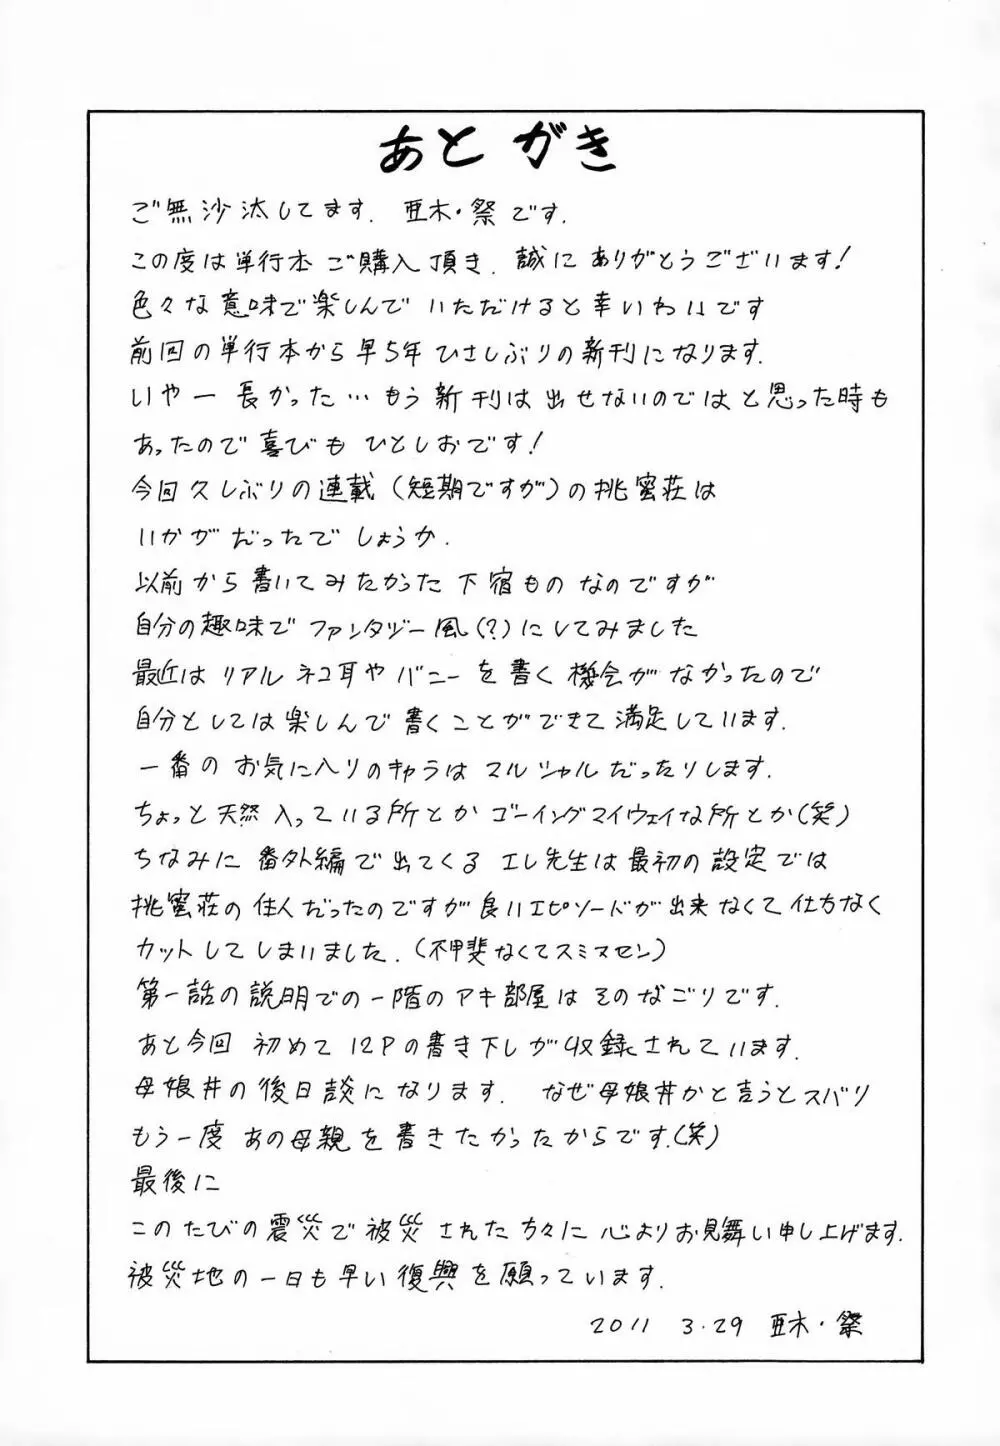 あとがき
ご無沙汰してます. 亜木・祭です.
この度は単行本ご購入頂き. 誠にありがとうございます!
色々な意味で楽しんでいただけると幸いわいです
前回の単行本から早5年ひさしぶりの新刊になります.
いやー長かった…もう新刊は出せないのではと思った時も
あったので喜びもひとしおです!
今回久しぶりの連載(短期ですが)の桃蜜荘は
いかがだったでしょうか.
以前から書いてみたかった下宿ものなのですが
自分の趣味でファンタジー風(?)にしてみました
最近はリアルネコ耳やバニーを書く機会がなかったので
自分としては楽しんで書くことができて満足しています.
一番のお気に入りのキャラはマルシャルだったりします.
ちょっと天然入っている所とかゴーイングマイウェイな所とか(笑)
ちなみに番外編で出てくるエレ先生は最初の設定では
桃蜜荘の住人だったのですが良いエピソードが出来なくて仕方なく
カットしてしまいました.(不甲斐なくてスミマセン)
第一話の説明での一階のアキ部屋はそのなごりです.
あと今回初めて12Pの書き下しが収録されています.
母娘丼の後日談になります. なぜ母娘丼かと言うとズバリ
もう一度あの母親を書きたかったからです.(笑)
最後に
このたびの震災で被災された方々に心よりお見舞い申し上げます.
被災地の一日も早い復興を願っています.
2011 3.29 亜木・祭